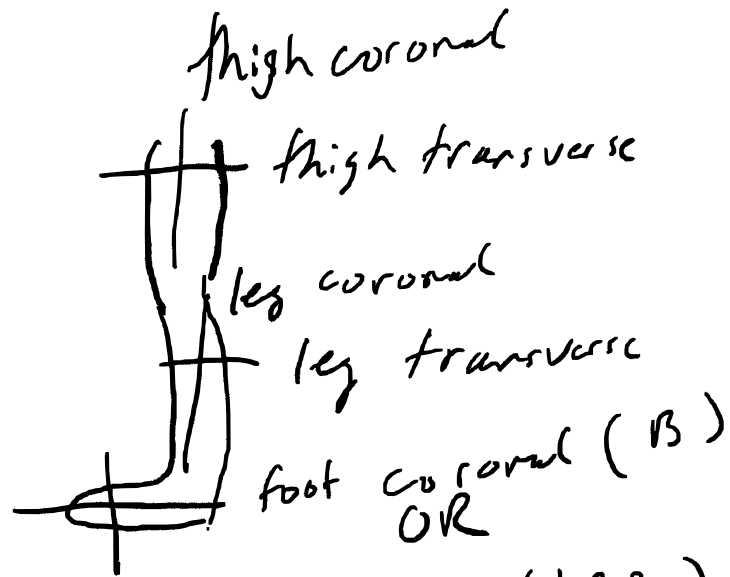 thigh coronal
thigh transverse
leg coronal
leg transverse
foot coronal (B)
OR